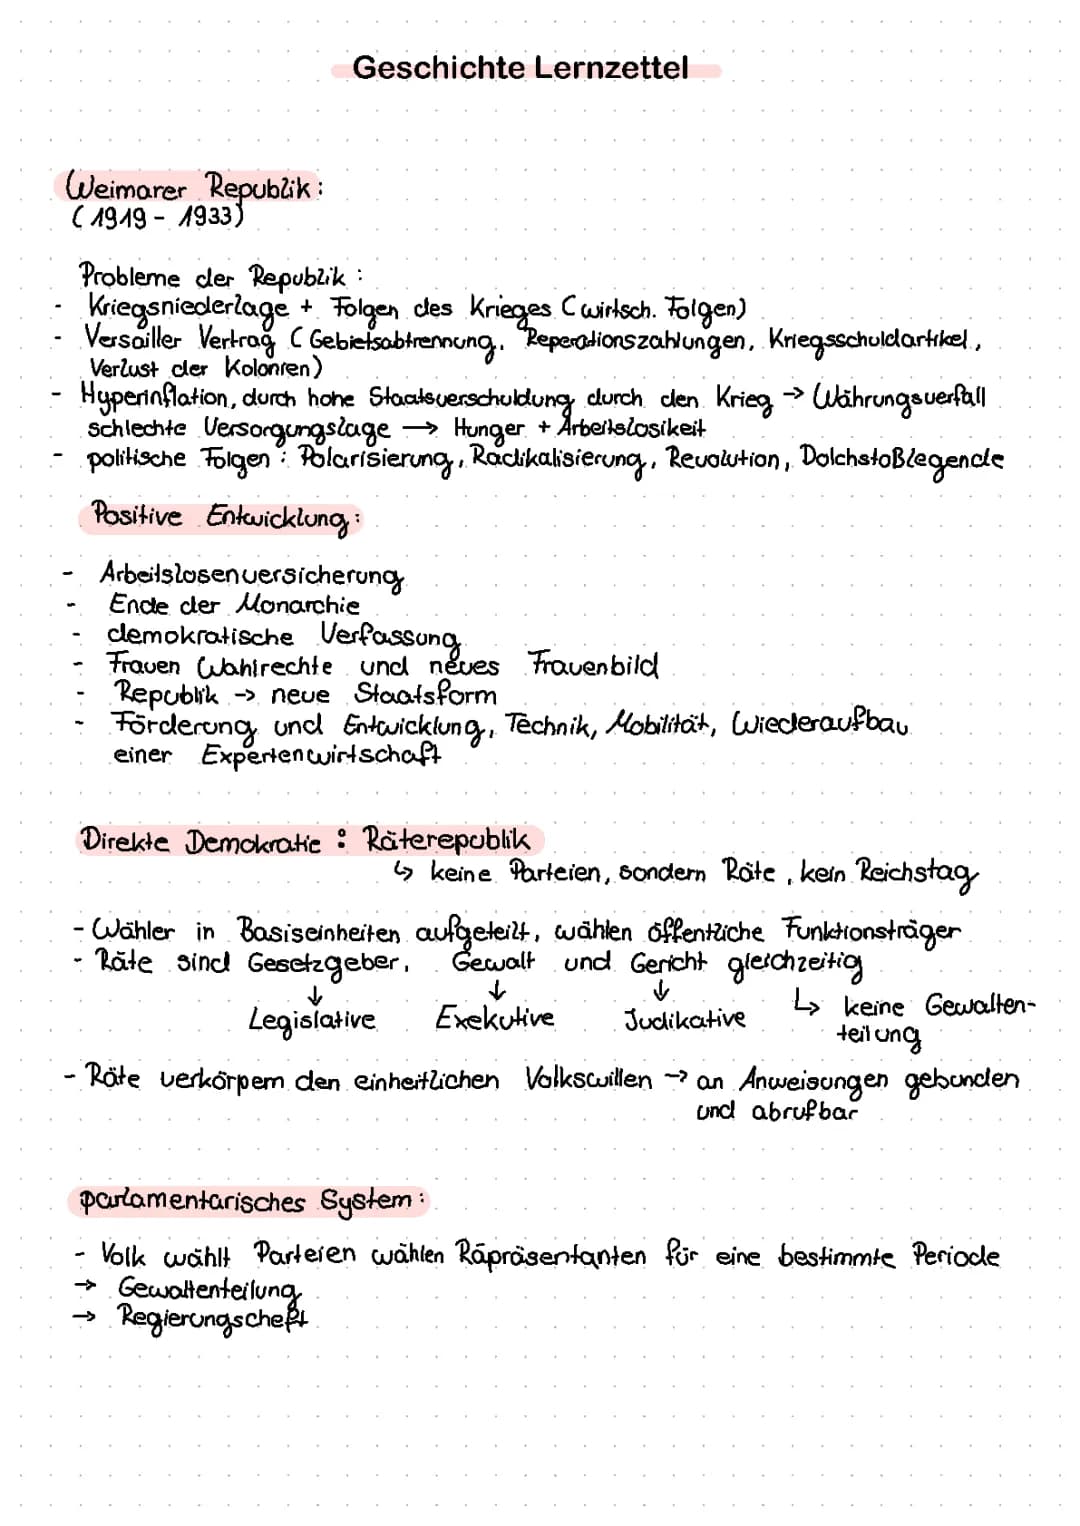 Geschichte Lernzettel
Weimarer Republik:
(1919 - 1933)
Probleme der Republik:
- Kriegsniederlage + Folgen des Krieges (wirtsch. Folgen)
- Versailler Vertrag (Gebietsabtrennung, Reperationszahlungen, Kriegsschuldartikel,
Verlust der Kolonien)
- Hyperinflation, durch hohe Staatsverschuldung durch den Krieg → Währungsverfall
schlechte Versorgungslage → Hunger + Arbeitslosikeit
- politische Folgen: Polarisierung, Radikalisierung, Revolution, Dolchstoßlegende
Positive Entwicklung:
- Arbeitslosenversicherung
- Ende der Monarchie
- demokratische Verfassung
- Frauen Wahlrechte und neues Frauenbild
- Republik → neue Staatsform
- Förderung und Entwicklung, Technik, Mobilität, Wiederaufbau
einer Expertenwirtschaft
Direkte Demokratie: Räterepublik
↳ keine Parteien, sondern Räte, kein Reichstag
- Wähler in Basiseinheiten aufgeteilt, wählen öffentliche Funktionsträger
- Räte sind Gesetzgeber, Gewalt und Gericht gleichzeitig
↓ ↓ ↓ ↳ keine Gewalten-
Legislative Exekutive Judikative teilung
- Räte verkörpern den einheitlichen Volkswillen → an Anweisungen gebunden
und abrufbar
parlamentarisches System:
- Volk wählt Parteien wählen Räpräsentanten für eine bestimmte Periode
→ Gewaltenteilung
→ Regierungscheft